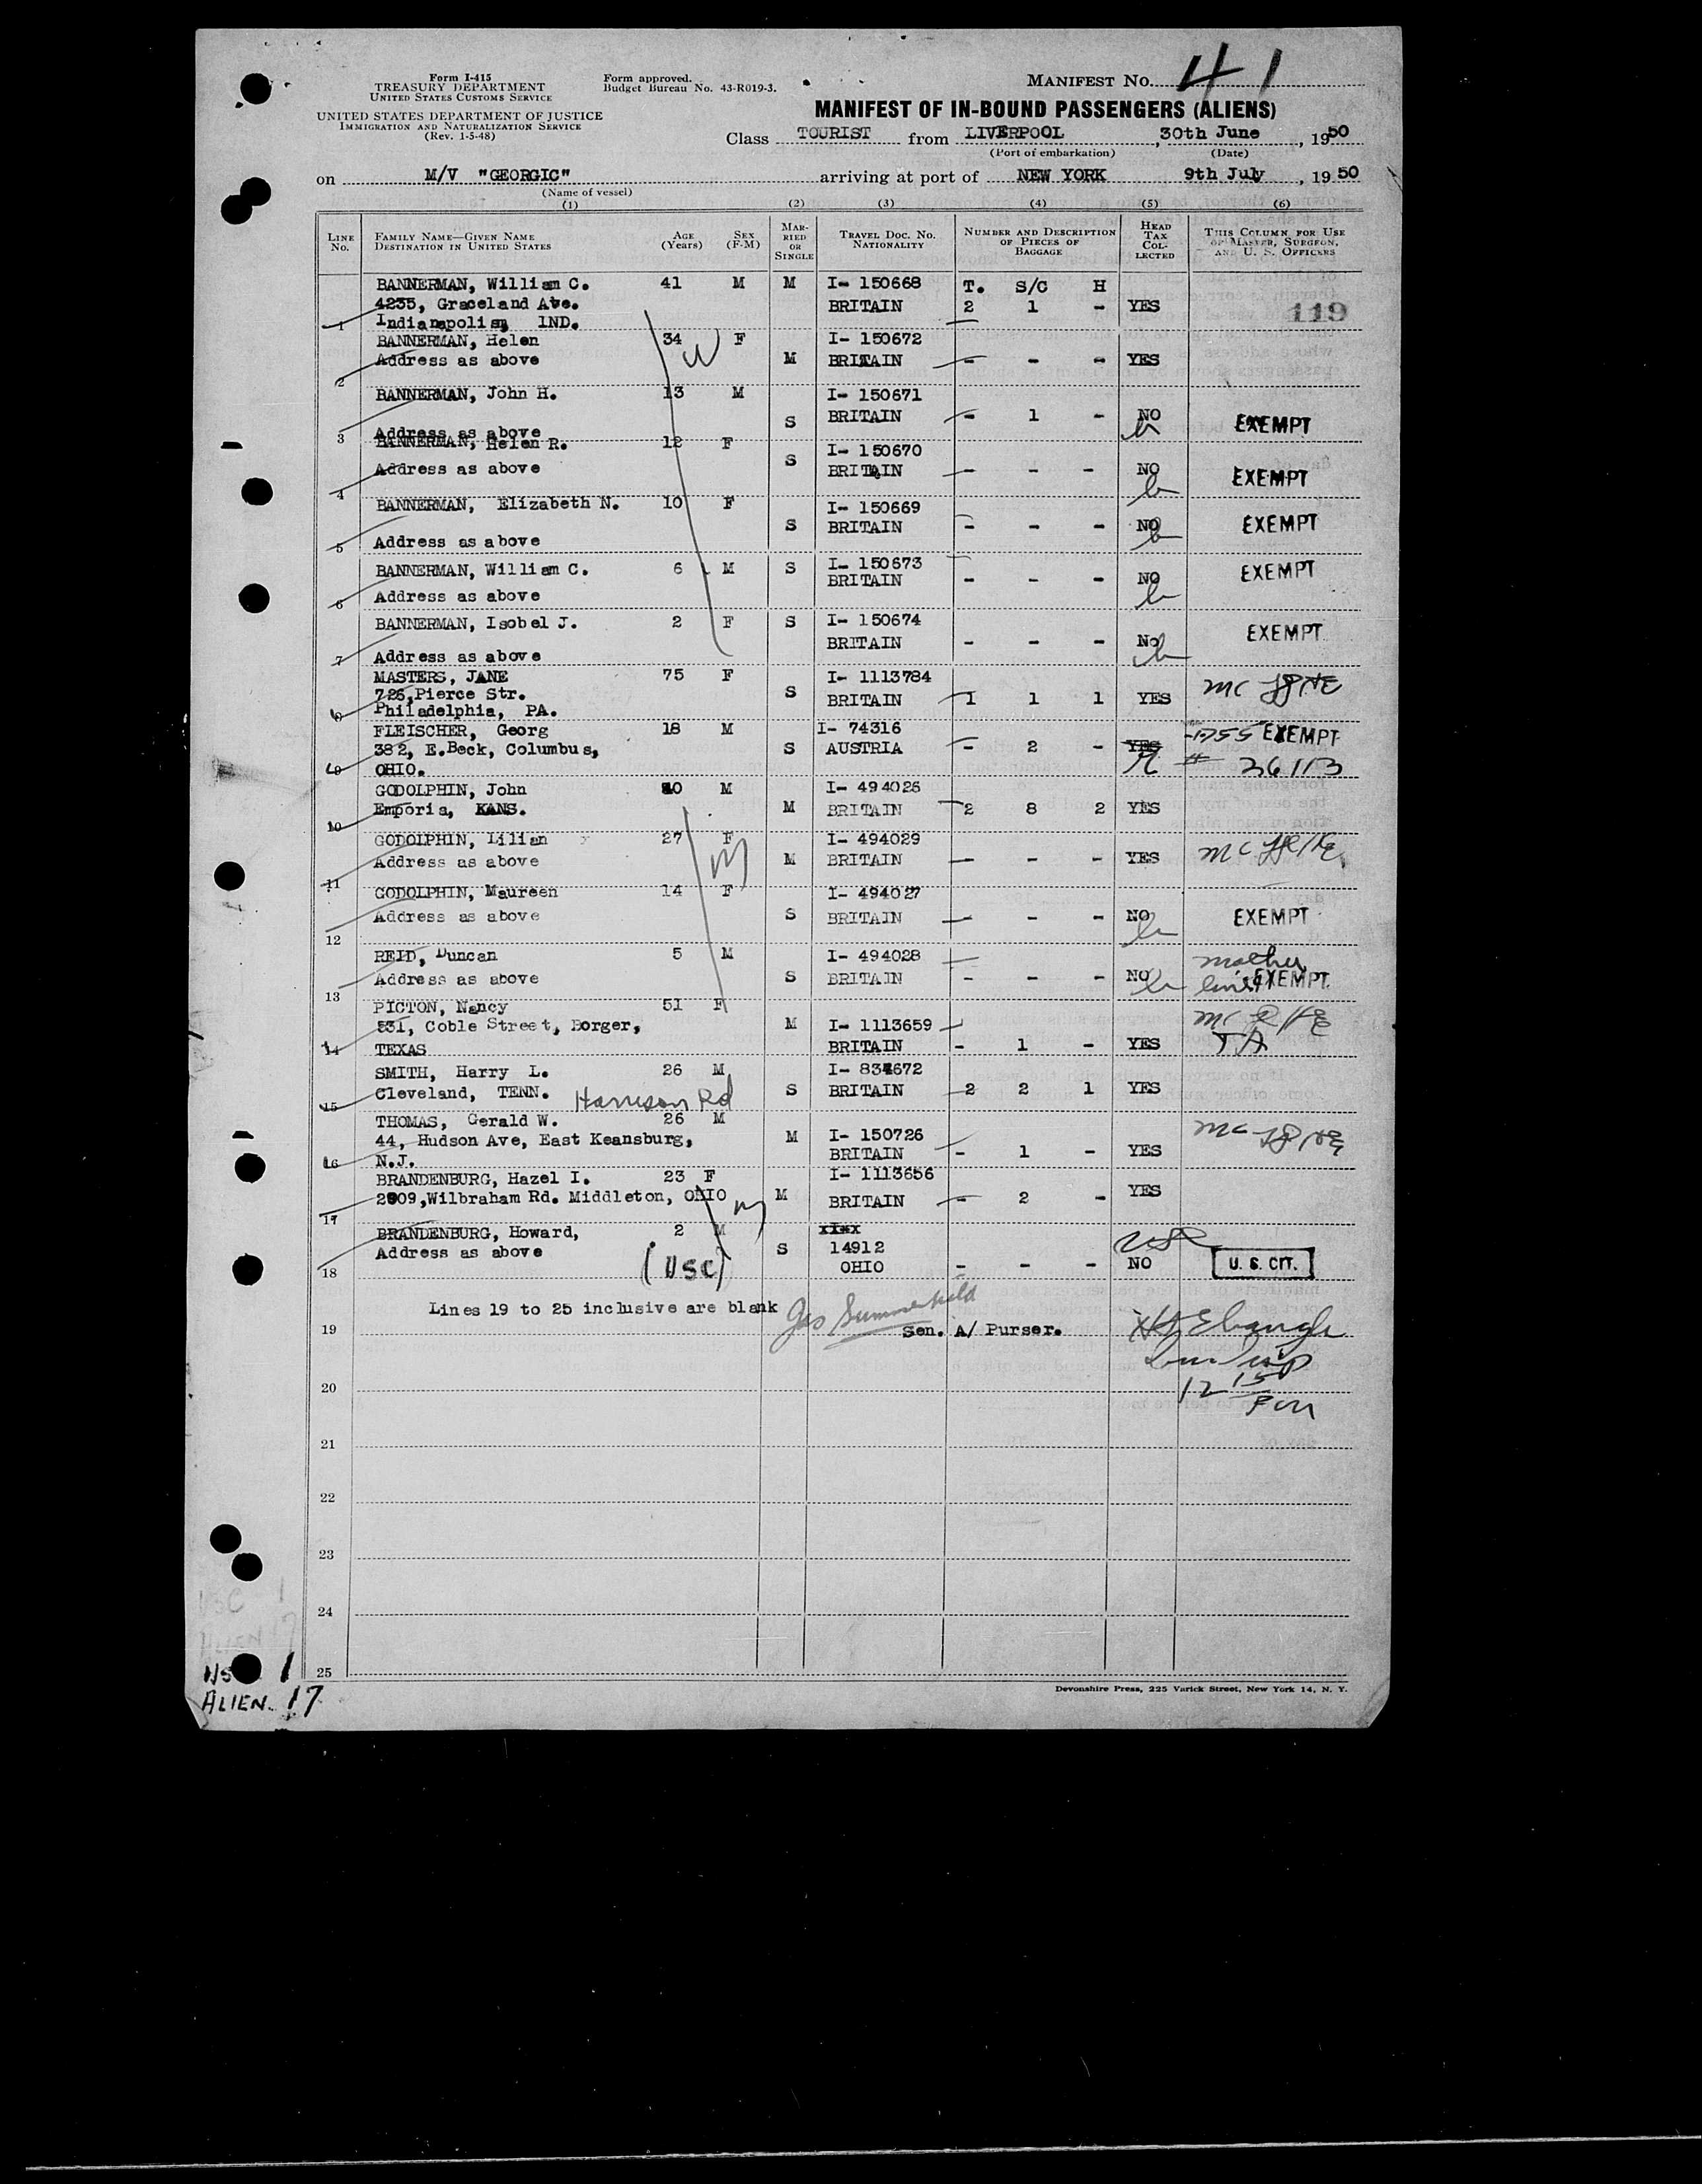 Form I-415
TREASURY DEPARTMENT
UNITED STATES CUSTOMS SERVICE
UNITED STATES DEPARTMENT OF JUSTICE
IMMIGRATION AND NATURALIZATION SERVICE
(Rev. 1-5-48)
Form approved.
Budget Bureau No. 43-R019-3.
MANIFEST No. 41
MANIFEST OF IN-BOUND PASSENGERS (ALIENS)
Class TOURIST from LIVERPOOL, 30th June, 1950
(Port of embarkation) (Date)
on M/V "GEORGIC" arriving at port of NEW YORK 9th July, 1950
(Name of vessel)
(1) (2) (3) (4) (5) (6)
LINE No. FAMILY NAME—GIVEN NAME DESTINATION IN UNITED STATES AGE (Years) SEX (F-M) MARRIED OR SINGLE TRAVEL DOC. NO. NATIONALITY NUMBER AND DESCRIPTION OF PIECES OF BAGGAGE HEAD TAX COLLECTED THIS COLUMN FOR USE OF MASTER, SURGEON, AND U. S. OFFICERS
BANNERMAN, William C. 41 M M I- 150668 T. S/C H
4235, Graceland Ave. BRITAIN 2 1 - YES 119
1 Indianapolis, IND.
BANNERMAN, Helen 34 F I- 150672
Address as above M BRITAIN - - - YES
2
BANNERMAN, John H. 13 M I- 150671
S BRITAIN - 1 - NO EXEMPT
3 Address as above
BANNERMAN, Helen R. 12 F I- 150670
Address as above S BRITAIN - - - NO EXEMPT
4
BANNERMAN, Elizabeth N. 10 F I- 150669
S BRITAIN - - - NO EXEMPT
5 Address as above
BANNERMAN, William C. 6 M S I- 150673 EXEMPT
BRITAIN - - - NO
6 Address as above
BANNERMAN, Isobel J. 2 F S I- 150674 EXEMPT
BRITAIN - - - No
7 Address as above
MASTERS, JANE 75 F I- 1113784
726, Pierce Str. S BRITAIN 1 1 1 YES
8 Philadelphia, PA.
FLEISCHER, Georg 18 M I- 74316 EXEMPT
382, E.Beck, Columbus, S AUSTRIA - 2 - YES
9 OHIO. # 36113
GODOLPHIN, John 40 M I- 494026
Emporia, KANS. M BRITAIN 2 8 2 YES
10
GODOLPHIN, Lilian 27 F I- 494029
Address as above M BRITAIN - - - YES
11
GODOLPHIN, Maureen 14 F I- 494027
Address as above S BRITAIN - - - NO EXEMPT
12
REID, Duncan 5 M I- 494028 mother
Address as above S BRITAIN - - - NO EXEMPT
13
PICTON, Nancy 51 F
531, Coble Street, Borger, M I- 1113659
14 TEXAS BRITAIN - 1 - YES
SMITH, Harry L. 26 M I- 834672
Cleveland, TENN. Harrison Rd S BRITAIN 2 2 1 YES
15
THOMAS, Gerald W. 26 M
44, Hudson Ave, East Keansburg, M I- 150726
16 N.J. BRITAIN - 1 - YES
BRANDENBURG, Hazel I. 23 F I- 1113656
2909, Wilbraham Rd. Middleton, OHIO M BRITAIN - 2 - YES
17
BRANDENBURG, Howard, 2 M
Address as above S 14912
18 (USC) OHIO - - - NO U. S. CIT.
Lines 19 to 25 inclusive are blank
19 Sen. A/ Purser.
20
12 15
21
22
23
24
25
USC 1
ALIEN 17
ALIEN. 17
Devonshire Press, 225 Varick Street, New York 14, N. Y.